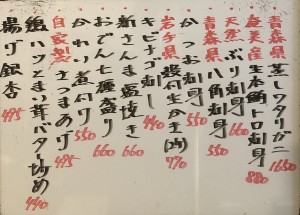 青森県 蒸しワタリガニ 1650
奄美産 生本鮪トロ刺身 880
天然 ぶり刺身 660
青森県 八角刺身 550
かつお刺身 550
岩手県 殻付生かき(内) 770
キビナゴ刺し 440
新さんま塩焼き 660
おでん七種盛り 660
かわり煮付け 550
自家製 さつまあげ 495
鶏ハツとまい茸バター炒め 440
揚げ銀杏 495